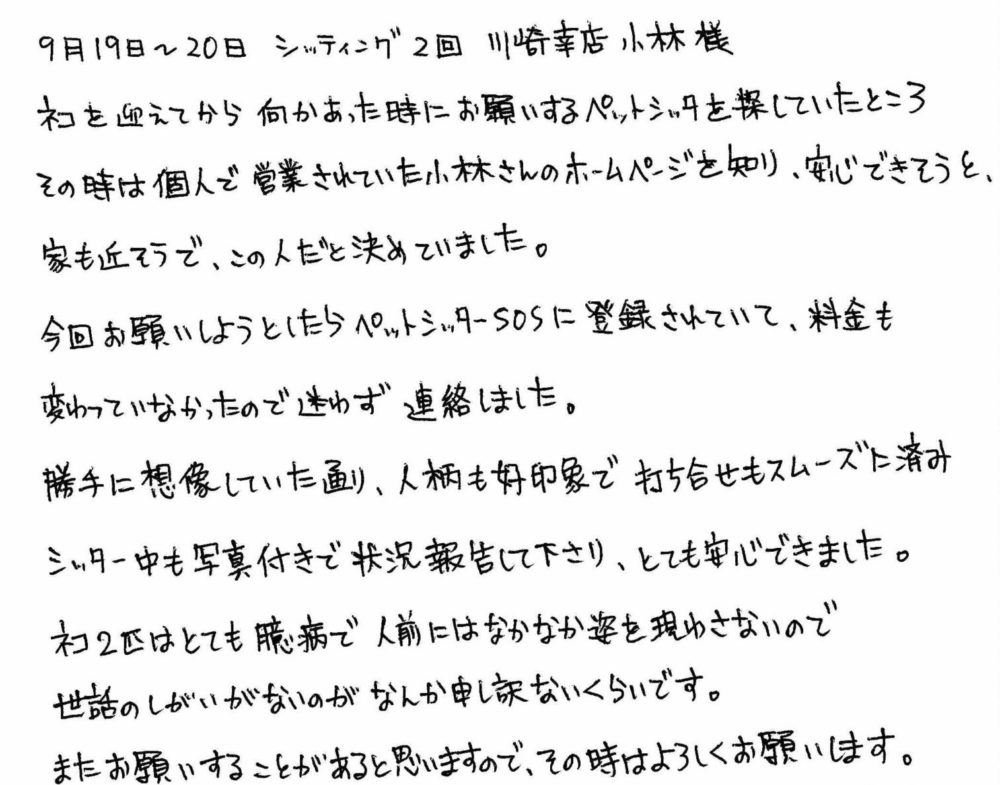 9月19日～20日 シッティング2回 川崎幸店 小林様
ネコを迎えてから 何かあった時にお願いするペットシッタを探していたところ
その時は個人で営業されていた小林さんのホームページを知り、安心できそうと、
家も近そうで、この人だと決めていました。
今回お願いしようとしたらペットシッターSOSに登録されていて、料金も
変わっていなかったので迷わず連絡しました。
勝手に想像していた通り、人柄も好印象で 打ち合せもスムーズに済み
シッター中も写真付きで状況報告して下さり、とても安心できました。
ネコ2匹はとても臆病で 人前にはなかなか姿を現わさないので
世話のしがいがないのがなんか申し訳ないくらいです。
またお願いすることがあると思いますので、その時はよろしくお願いします。